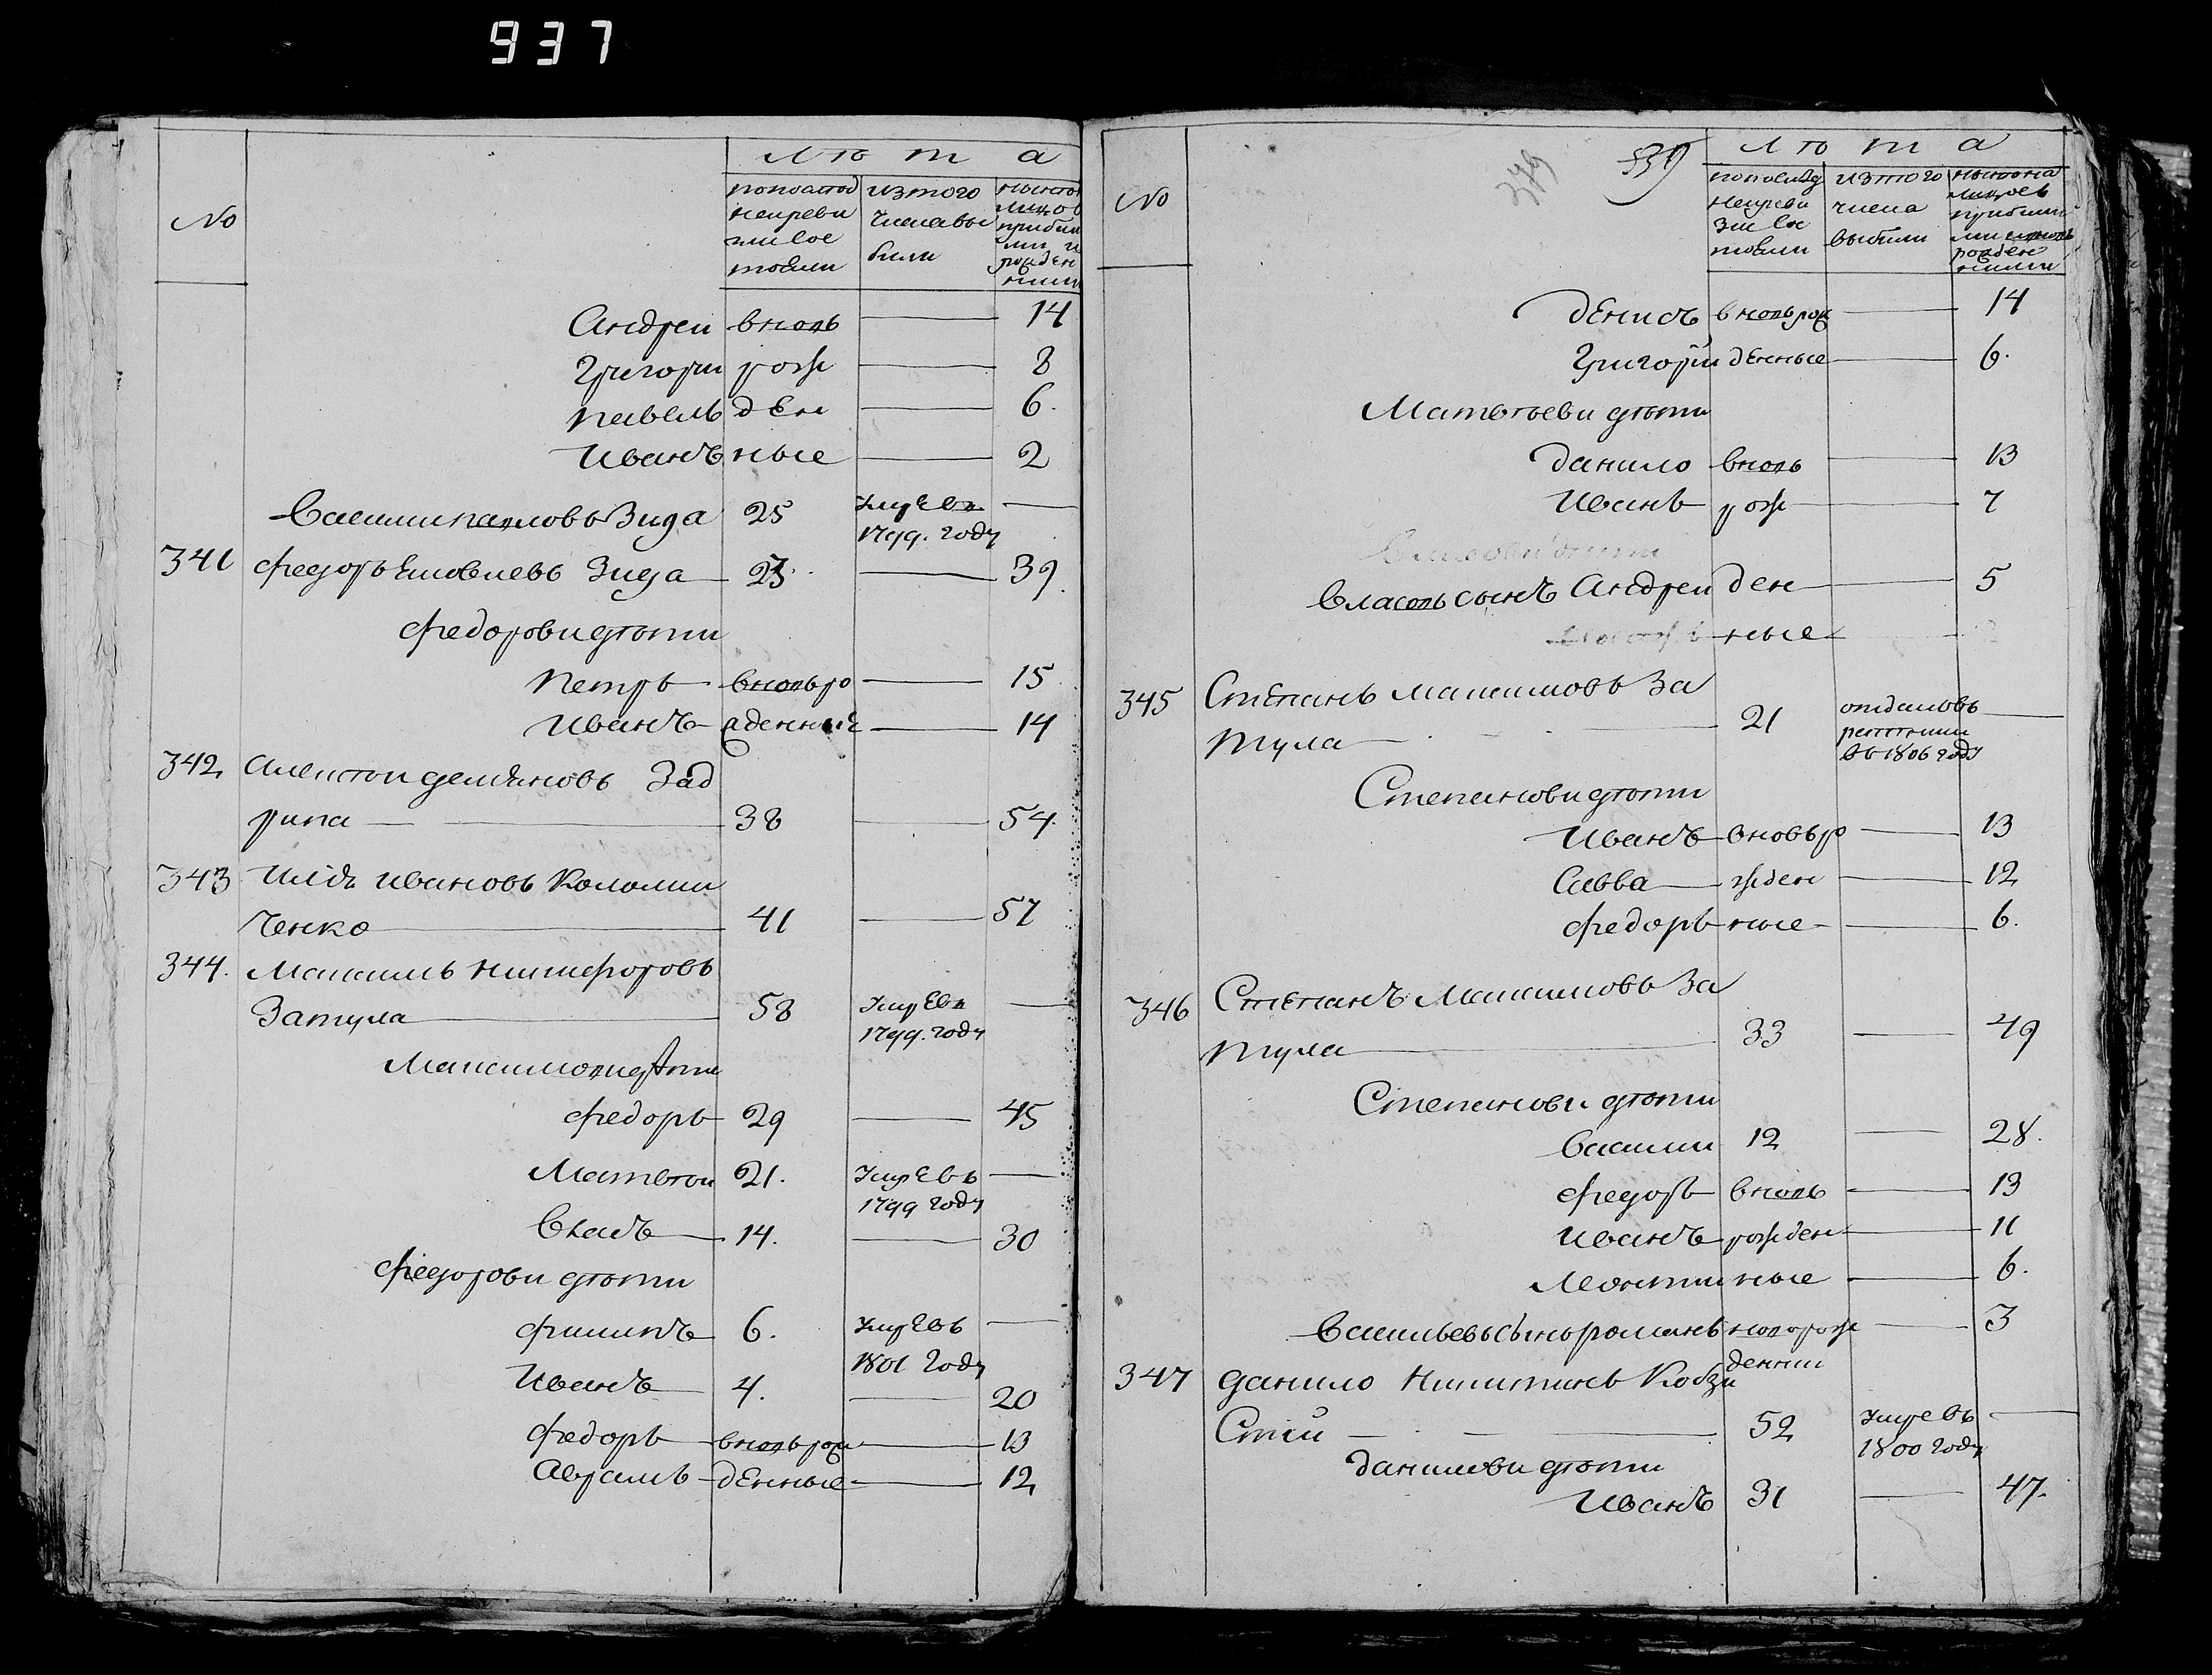 937
Лѣта
№
попослед
ней реви
зии сос
тояли
изтого
числа вы
были
Андрей вновь 14
Григори рож 8
павелъ ден 6.
Иванъ ные 2
Василий павловъ Зида 25 умре въ
1799. году
341 Федоръ Яковлевъ Зида 23. 39.
Федорови дѣти
Петръ вновь ро 15
Иванъ жденные 14
342 Алексѣй демяновъ Зад
рипа 38 54.
343 Илья ивановъ Коломий
ченко 41 57
344. Максимъ никифоровъ
Затула 58 умре въ
1799. году
Максимови дѣти
Федоръ 29 45
Матвѣй 21. умре въ
1799 году
Власъ 14. 30
Федорови дѣти
Филипъ 6. умре въ
1801 году
Иванъ 4. 20
Федоръ вновь рож 13
Аврамъ денные 12
539
379
Лѣта
№
попослед
ней реви
зии сос
тояли
изтого
числа
выбыли
ныне на
лицо съ
прибыли
ми и вновь
рожден
ными
Денисъ вновь рож 14
Григорій денные 6.
Матвѣеви дѣти
Данило вновь 13
Иванъ рож 7
Власовъ сынъ Андрей ден 5
ные
345 Степанъ максимовъ За
тула 21 отданъ въ
рекруты
въ 1806 году
Степанови дѣти
Иванъ вновь ро 13
Савва жден 12
Федоръ ные 6.
346 Степанъ Максимовъ За
тула 33 49
Степанови дѣти
Василий 12 28.
Федоръ вновь 13
Иванъ рожден 11
Леонтий ные 6.
Васильевъ сынъ романъ новорож 3
денний
347 Данило Никитинъ Кобзи
Стий 52 умре въ
1800 году
Данилови дѣти
Иванъ 31 47.